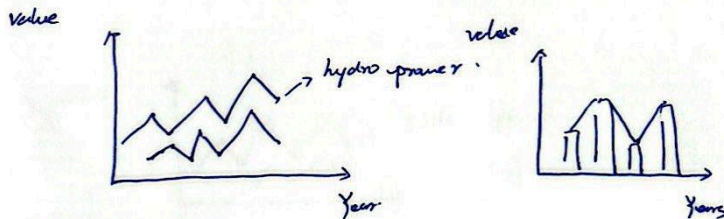 value
hydro power.
Year
value
Years